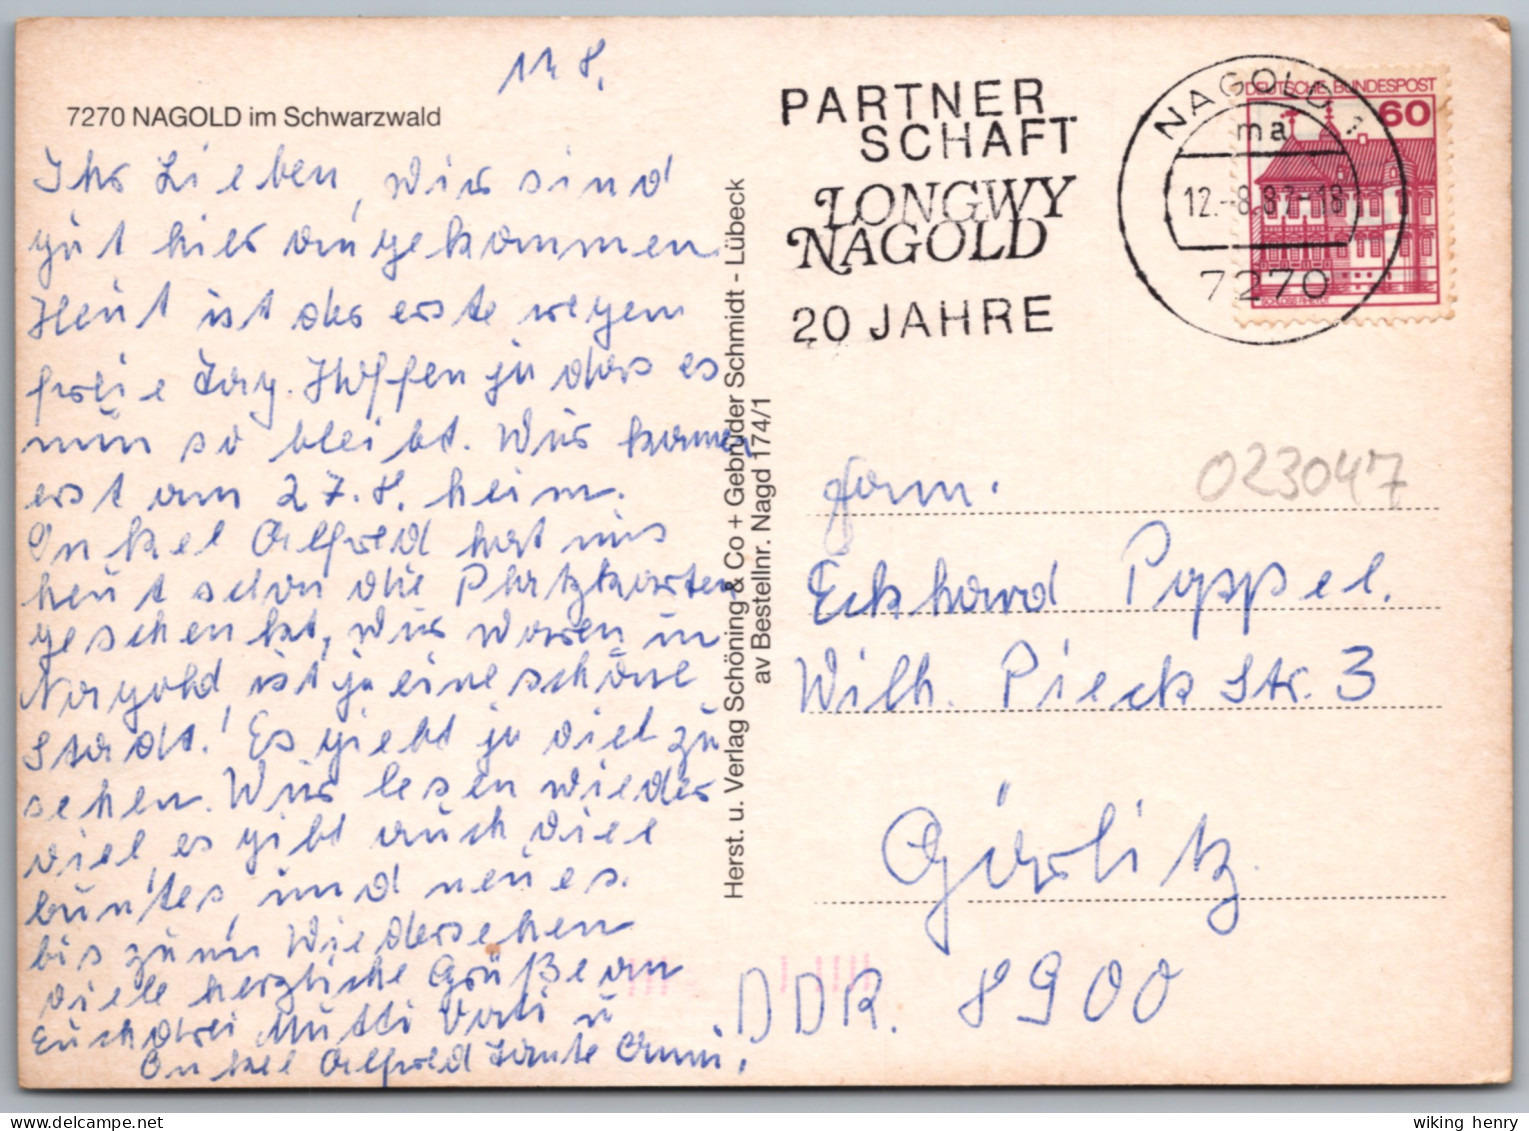 11. 8.
7270 NAGOLD im Schwarzwald
Ihr Lieben, wir sind
gut hier angekommen
Heut ist der erste regen
freie Tag. Hoffen ja das es
nun so bleibt. Wir kommen
erst am 27.8. heim.
Onkel Alfred hat uns
heut schon die Platzkarten
geschenkt, wir waren in
Nagold, ist ja eine schöne
Stadt! Es giebt ja viel zu
sehen. Wir lesen wieder
viel, es gibt auch viel
buntes, und neues.
bis zum Wiedersehen
viele herzliche Grüße an
Euch drei Mutti Vati u
Onkel Alfred Tante Anni.
Herst. u. Verlag Schöning & Co + Gebrüder Schmidt - Lübeck
av Bestellnr. Nagd 174/1
PARTNER
SCHAFT
LONGWY
NAGOLD
20 JAHRE
NAGOLD 1
ma
12.-8.87-18
7270
DEUTSCHE BUNDESPOST
60
023047
Fam.
Eckhard Poppel.
Wilh. Pieck Str. 3
Görlitz
DDR. 8900
wiking henry